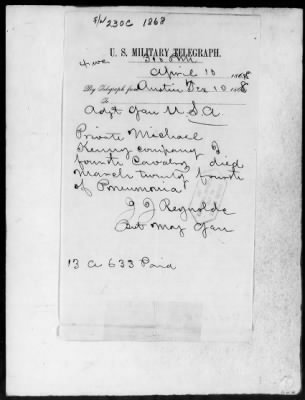 S/W 230C 1868
U. S. MILITARY TELEGRAPH.
April 10 1868
By Telegraph from Austin Tex 10 1868
To Adjt Gen U.S.A.
Private Michael
Kenny company I
fourth Cavalry died
March twenty fourth
of Pneumonia
J J Reynolds
Bvt Maj Gen
13 a 633 Paid